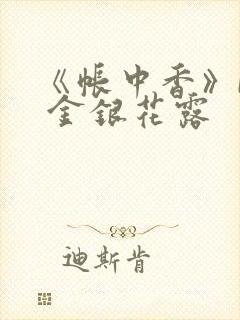 《帳中香》
金銀花露
迪斯肯